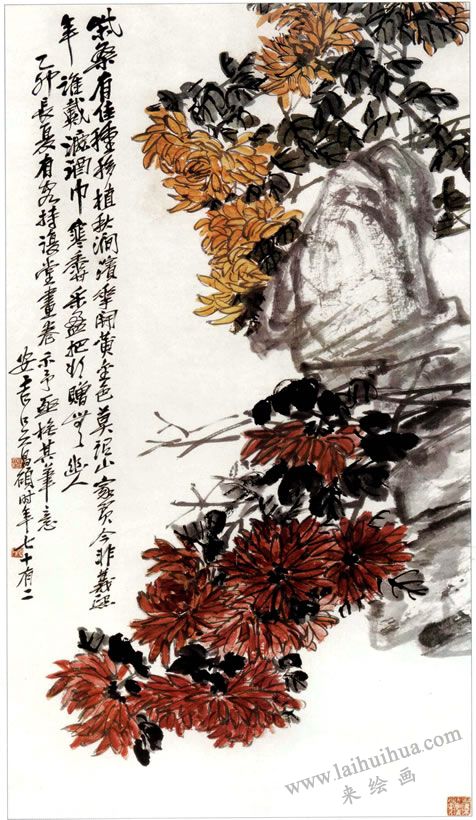 柴桑有佳種移植秋澗濱華開黃金色莫小家貧今非義熙
年誰戴漉酒巾采盈把贈幽人
乙卯長夏有客持復堂畫卷示予其筆意
安吉吳昌碩時年七十有二
www.laihuihua.com
来绘画